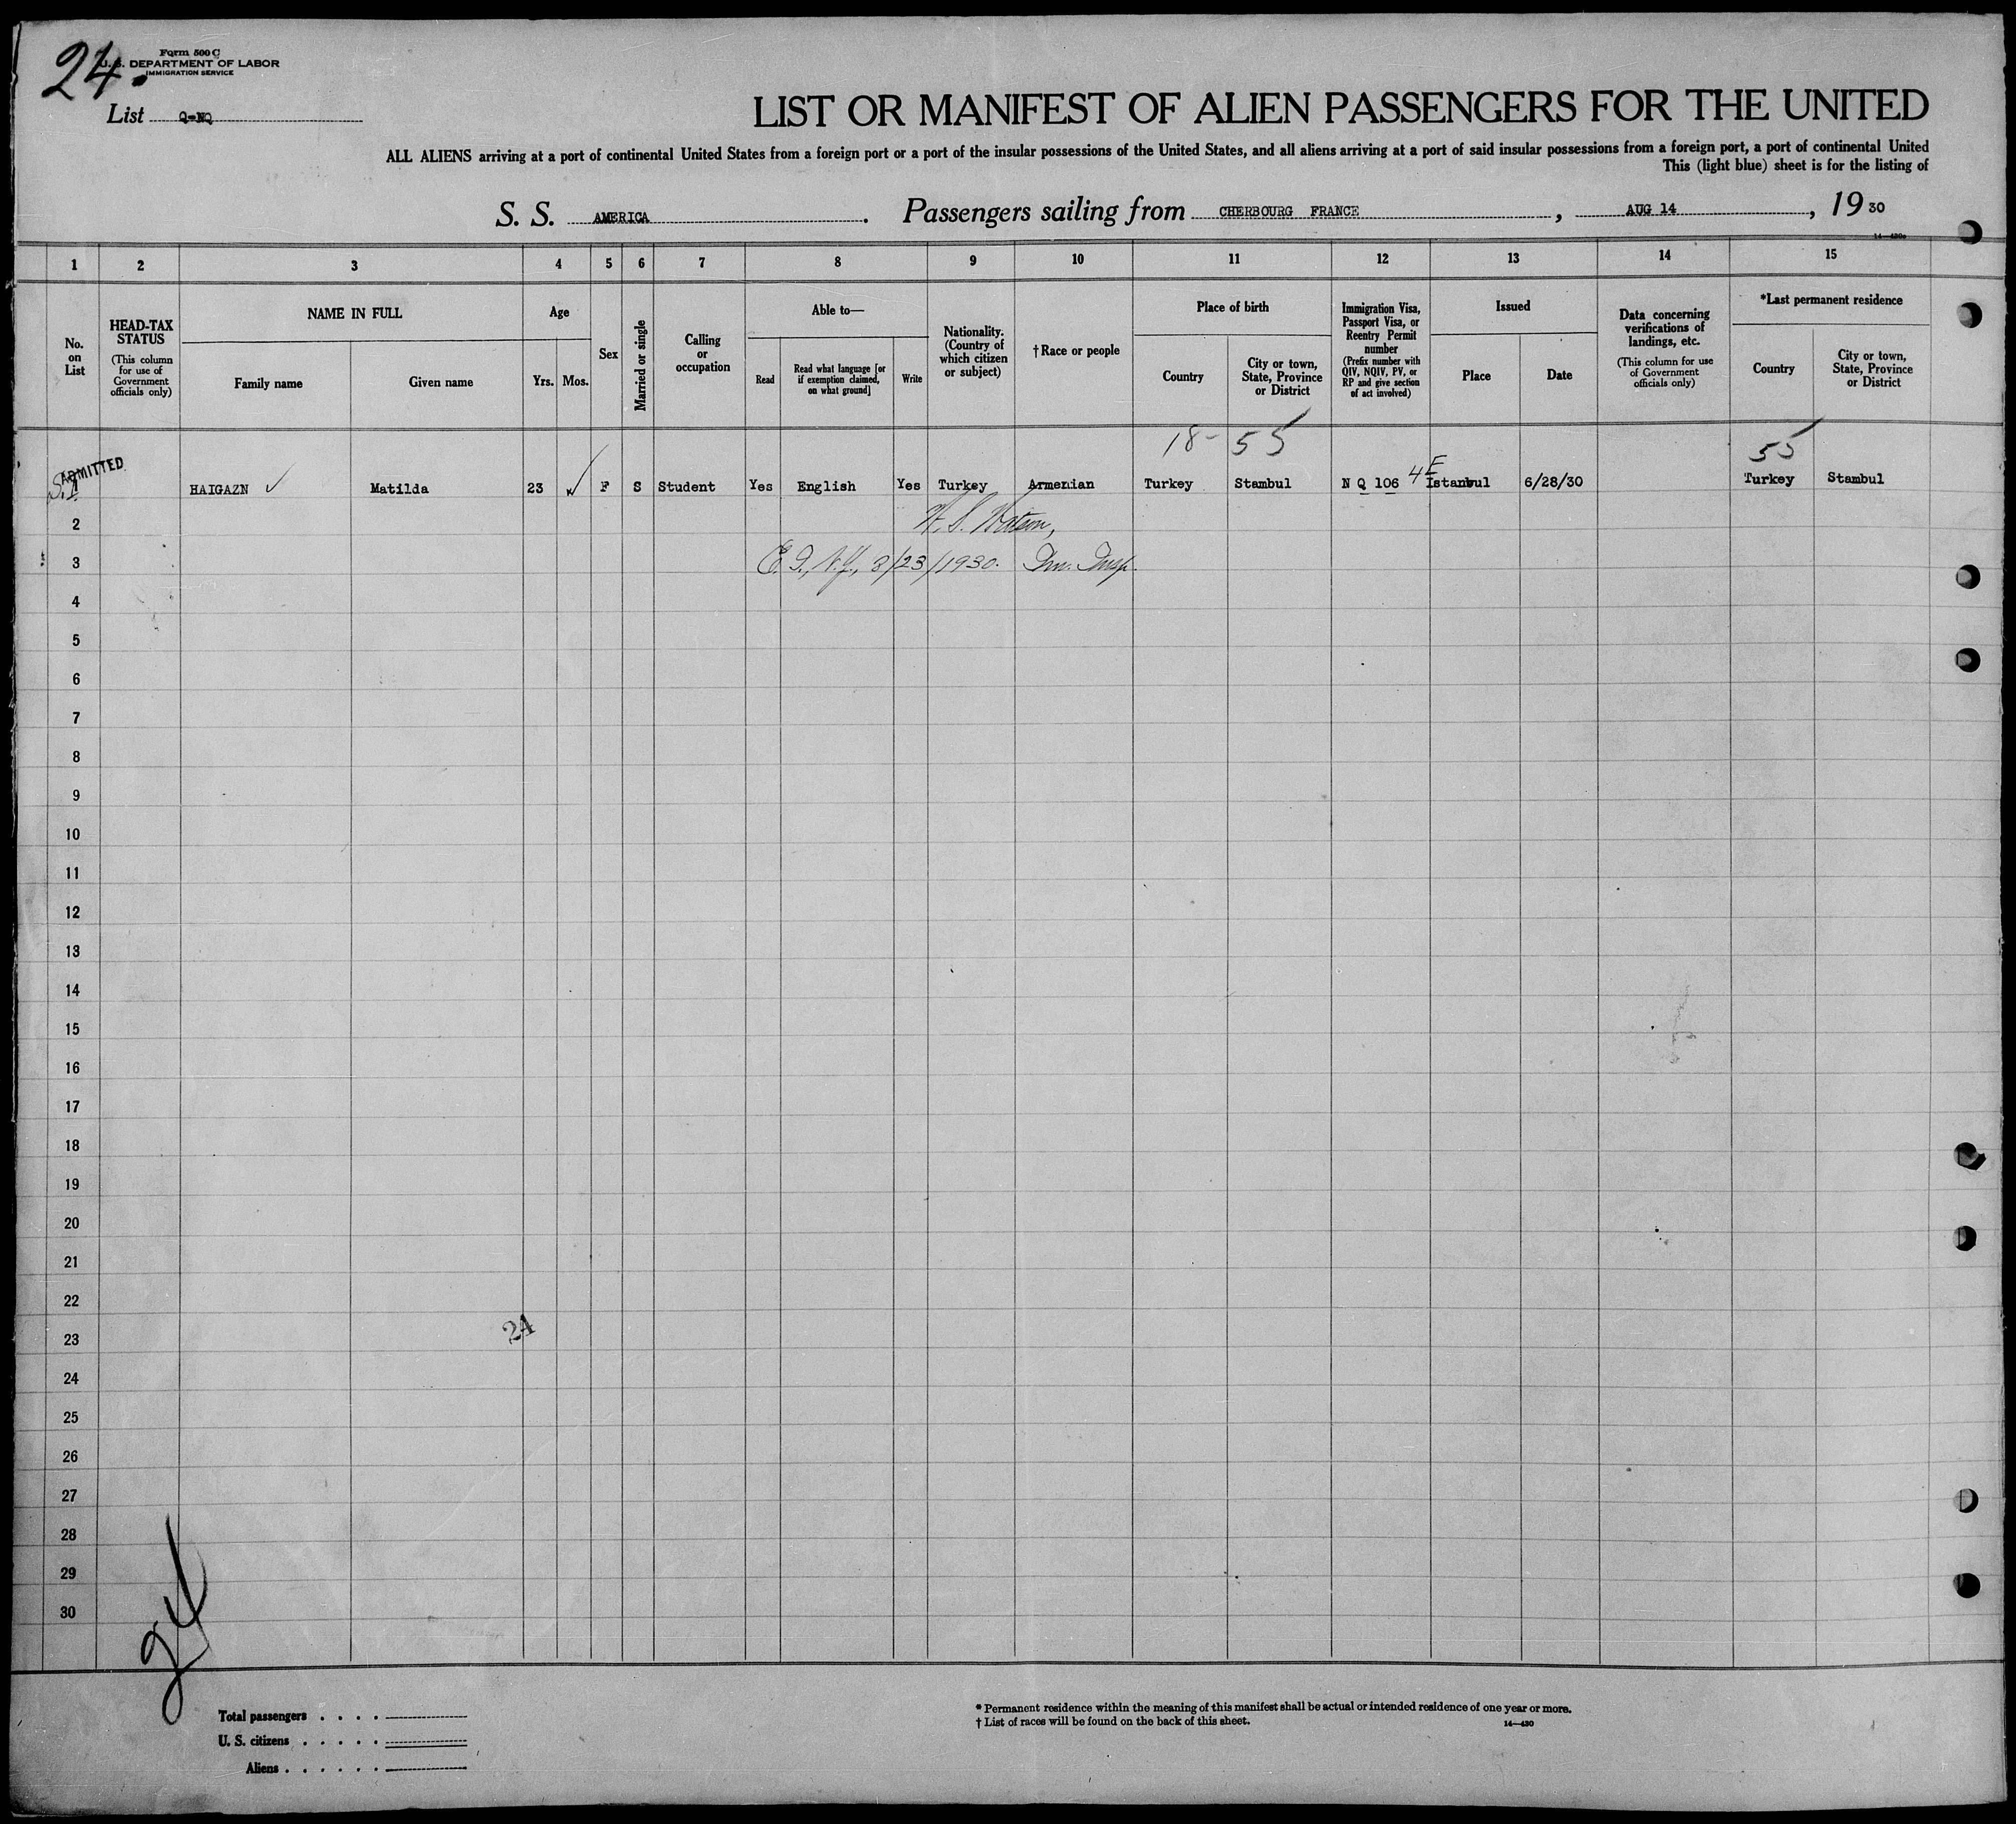 24.
Form 500 C
U. S. DEPARTMENT OF LABOR
IMMIGRATION SERVICE
List Q-NQ
LIST OR MANIFEST OF ALIEN PASSENGERS FOR THE UNITED
ALL ALIENS arriving at a port of continental United States from a foreign port or a port of the insular possessions of the United States, and all aliens arriving at a port of said insular possessions from a foreign port, a port of continental United
This (light blue) sheet is for the listing of
S. S. AMERICA. Passengers sailing from CHERBOURG FRANCE, AUG 14, 19 30
1 2 3 4 5 6 7 8 9 10 11 12 13 14 15
No. on List
HEAD-TAX STATUS (This column for use of Government officials only)
NAME IN FULL
Family name
Given name
Age
Yrs. Mos.
Sex
Married or single
Calling or occupation
Able to—
Read
Read what language [or if exemption claimed, on what ground]
Write
Nationality. (Country of which citizen or subject)
†Race or people
Place of birth
Country
City or town, State, Province or District
Immigration Visa, Passport Visa, or Reentry Permit number (Prefix number with QIV, NQIV, PV, or RP and give section of act involved)
Issued
Place
Date
Data concerning verifications of landings, etc. (This column for use of Government officials only)
*Last permanent residence
Country
City or town, State, Province or District
18- 55 55
ADMITTED
1 HAIGAZN Matilda 23 F S Student Yes English Yes Turkey Armenian Turkey Stambul N Q 106 4E Istanbul 6/28/30 Turkey Stambul
2 W. S. Watson,
3 E. I., N.Y., 8/23/1930. Imm. Insp.
4
5
6
7
8
9
10
11
12
13
14
15
16
17
18
19
20
21
22
23 24
24
25
26
27
28
29
30
24
Total passengers . . . .
U. S. citizens . . . . .
Aliens . . . . . .
* Permanent residence within the meaning of this manifest shall be actual or intended residence of one year or more.
† List of races will be found on the back of this sheet. 14—430